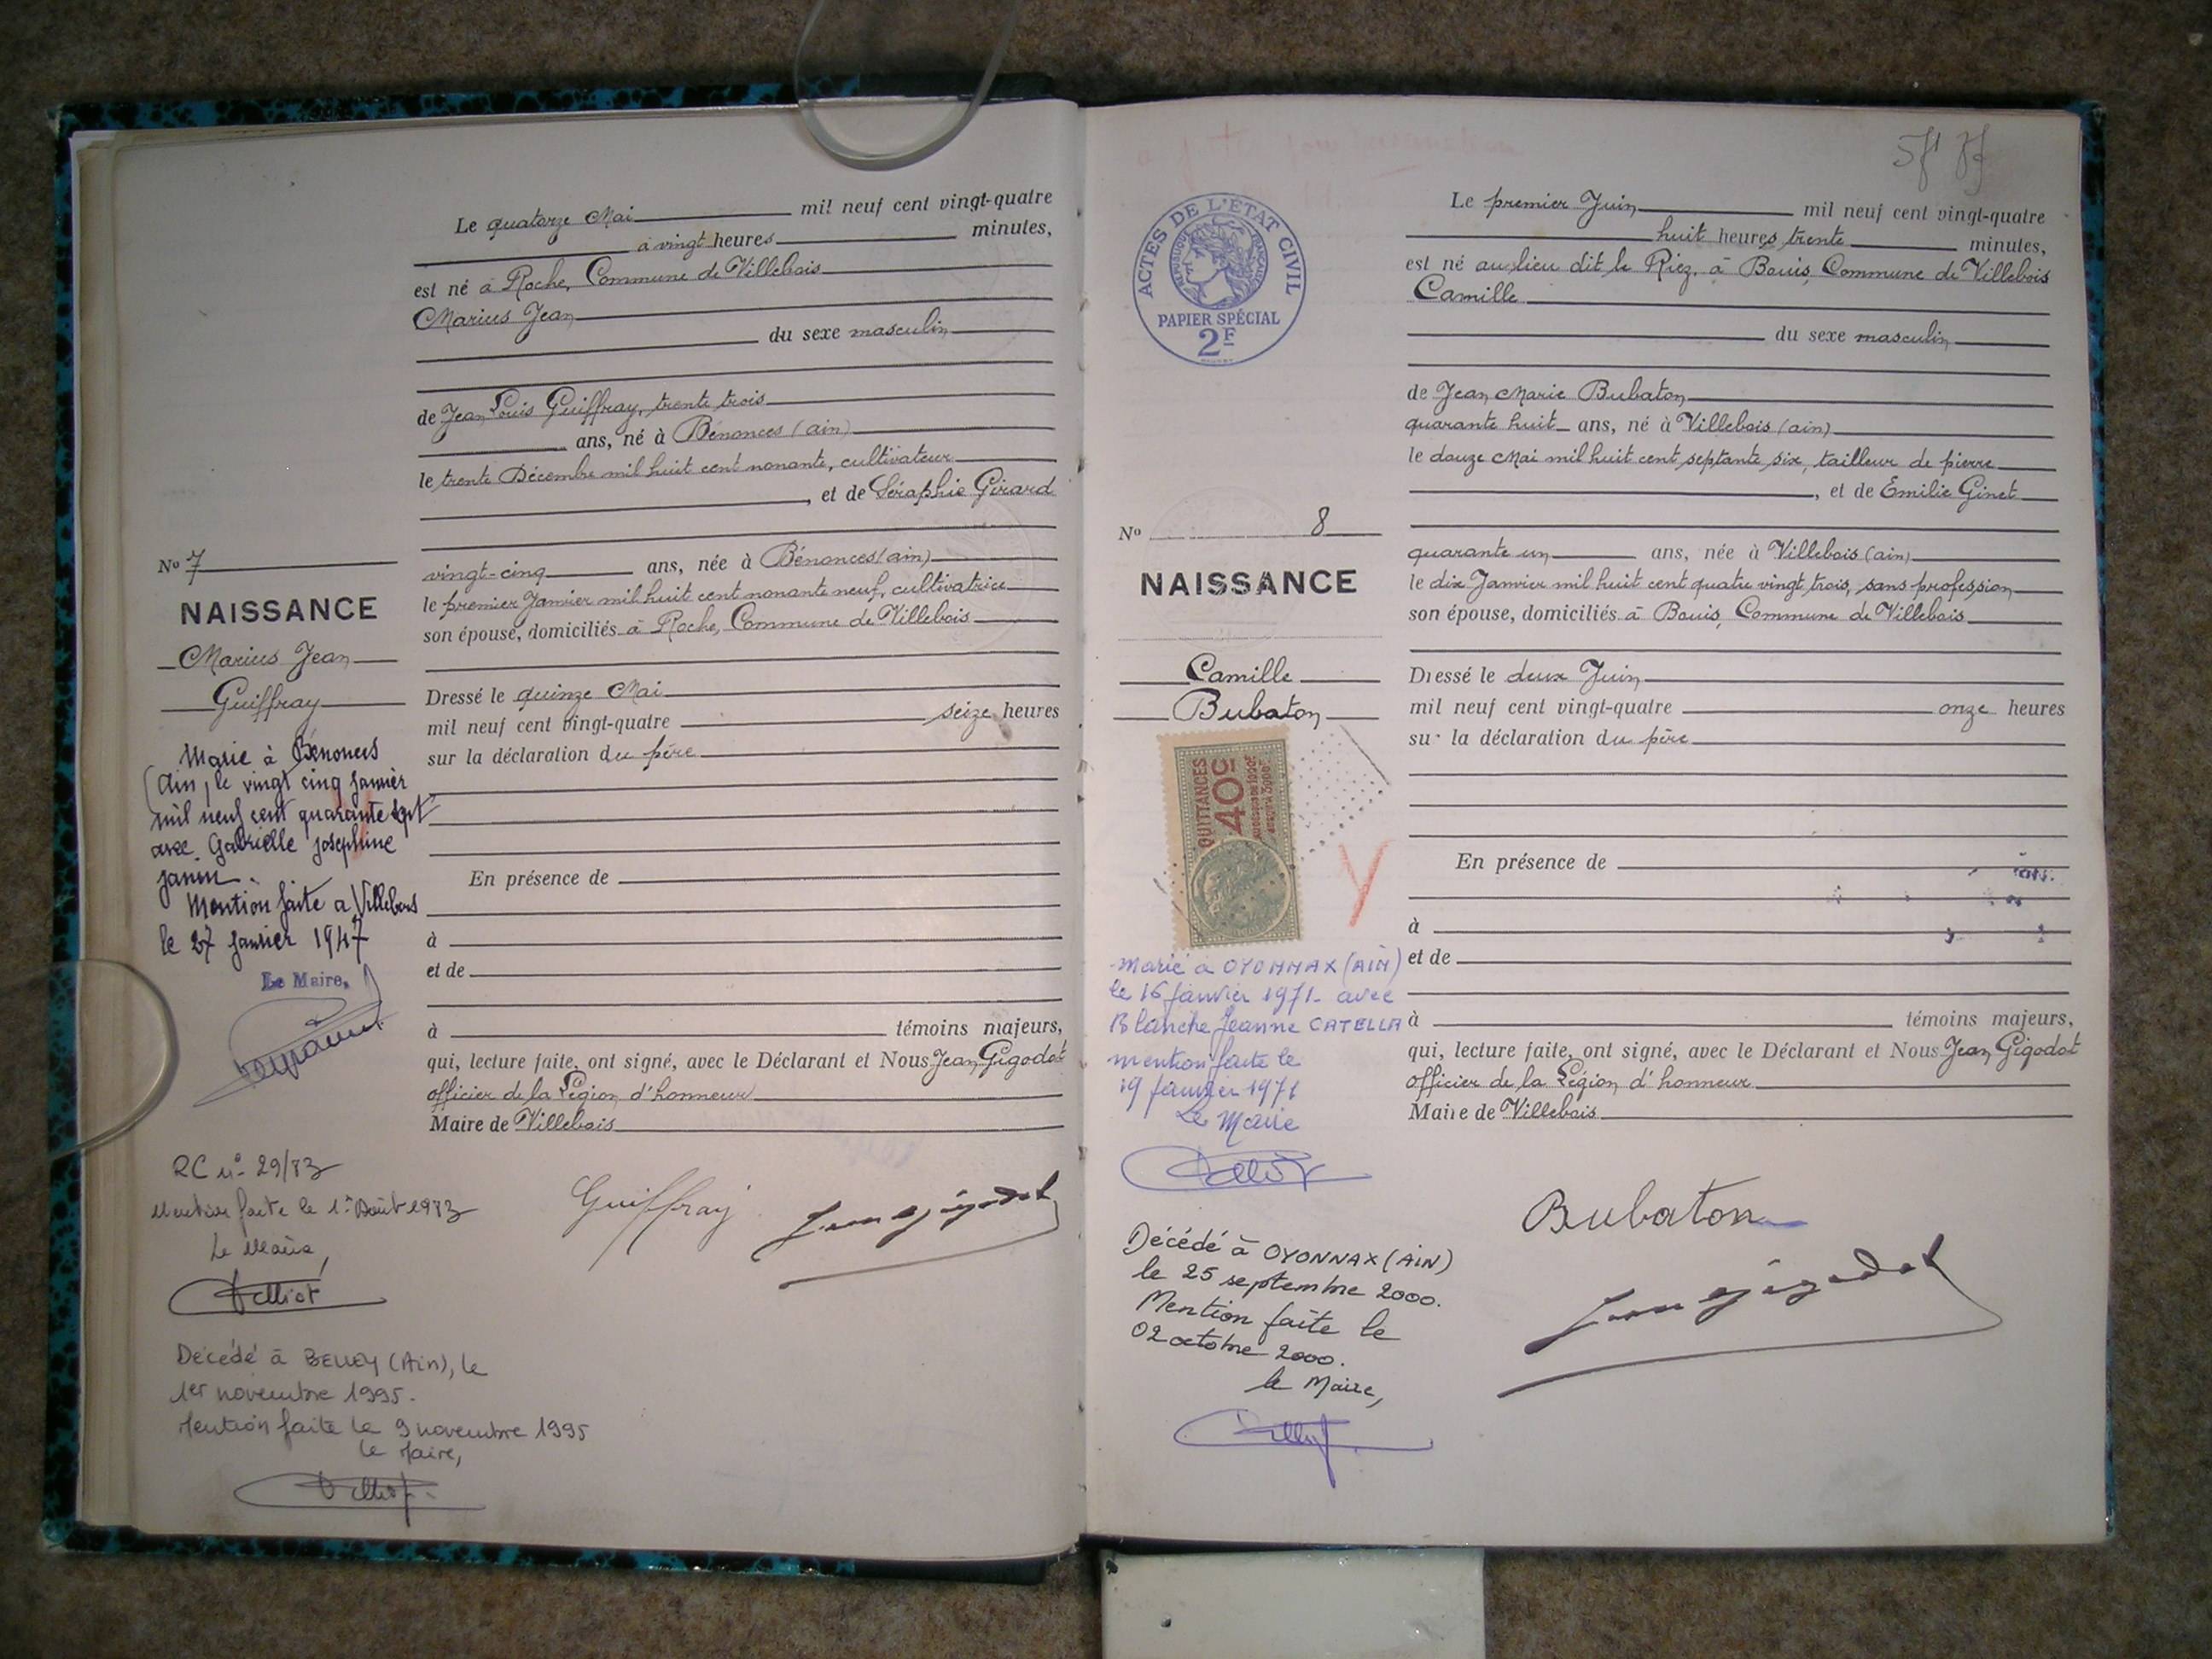 Le quatorze Mai mil neuf cent vingt-quatre
à vingt heures minutes,
est né à Roche, Commune de Villebois
Marius Jean
du sexe masculin
de Jean Louis Guiffray, trente trois
ans, né à Bénonces (ain)
le trente Décembre mil huit cent nonante, cultivateur
, et de Séraphie Girard
No 7
NAISSANCE
Marius Jean
Guiffray
vingt-cinq ans, née à Bénonces (ain)
le premier Janvier mil huit cent nonante neuf, cultivatrice
son épouse, domiciliés à Roche, Commune de Villebois
Dressé le quinze Mai
mil neuf cent vingt-quatre seize heures
sur la déclaration du père
En présence de
à
et de
à témoins majeurs,
qui, lecture faite, ont signé, avec le Déclarant et Nous Jean Gigodot
officier de la Légion d'honneur
Maire de Villebois
Marié à Bénonces
(Ain, le vingt cinq janvier
mil neuf cent quarante sept
avec Gabrielle Joséphine
Janin.
Mention faite a Villebois
le 27 janvier 1947
Le Maire,
RC n° 29/83
Mention faite le 1er Août 1983
Le Maire,
Guiffray
Jean Gigodot
Décédé à BELLEY (Ain), le
1er novembre 1995.
Mention faite le 9 novembre 1995
le Maire,
ACTES DE L'ÉTAT CIVIL
RÉPUBLIQUE FRANÇAISE
PAPIER SPÉCIAL
2F
Le premier Juin mil neuf cent vingt-quatre
huit heures trente minutes,
est né au lieu dit le Riez, à Bouis, Commune de Villebois
Camille
du sexe masculin
de Jean Marie Bubaton
quarante huit ans, né à Villebois (ain)
le douze Mai mil huit cent septante six, tailleur de pierre
, et de Emilie Ginet
No 8
NAISSANCE
Camille
Bubaton
quarante un ans, née à Villebois (ain)
le dix Janvier mil huit cent quatre vingt trois, sans profession
son épouse, domiciliés à Bouis, Commune de Villebois
Dressé le deux Juin
mil neuf cent vingt-quatre onze heures
sur la déclaration du père
QUITTANCES
40c
En présence de
à
et de
à témoins majeurs,
qui, lecture faite, ont signé, avec le Déclarant et Nous Jean Gigodot
officier de la Légion d'honneur
Maire de Villebois
Marié à OYONNAX (AIN)
le 16 janvier 1971 - avec
Blanche Jeanne CATELLA
mention faite le
19 janvier 1971
Le Maire
Bubaton
Jean Gigodot
Décédé à OYONNAX (AiN)
le 25 septembre 2000.
Mention faite le
02 octobre 2000.
le Maire,